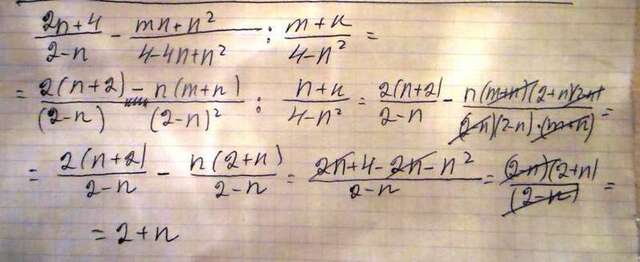 (2n+4)/(2-n) - (mn+n²)/(4-4n+n²) : (m+n)/(4-n²) =
= 2(n+2)/(2-n) - n(m+n)/(2-n)² : (n+n)/(4-n²) = 2(n+2)/(2-n) - n(m+n)(2+n)(2-n)/(2-n)(2-n)·(m+n) =
= 2(n+2)/(2-n) - n(2+n)/(2-n) = (2n+4-2n-n²)/(2-n) = (2-n)(2+n)/(2-n) =
= 2+n